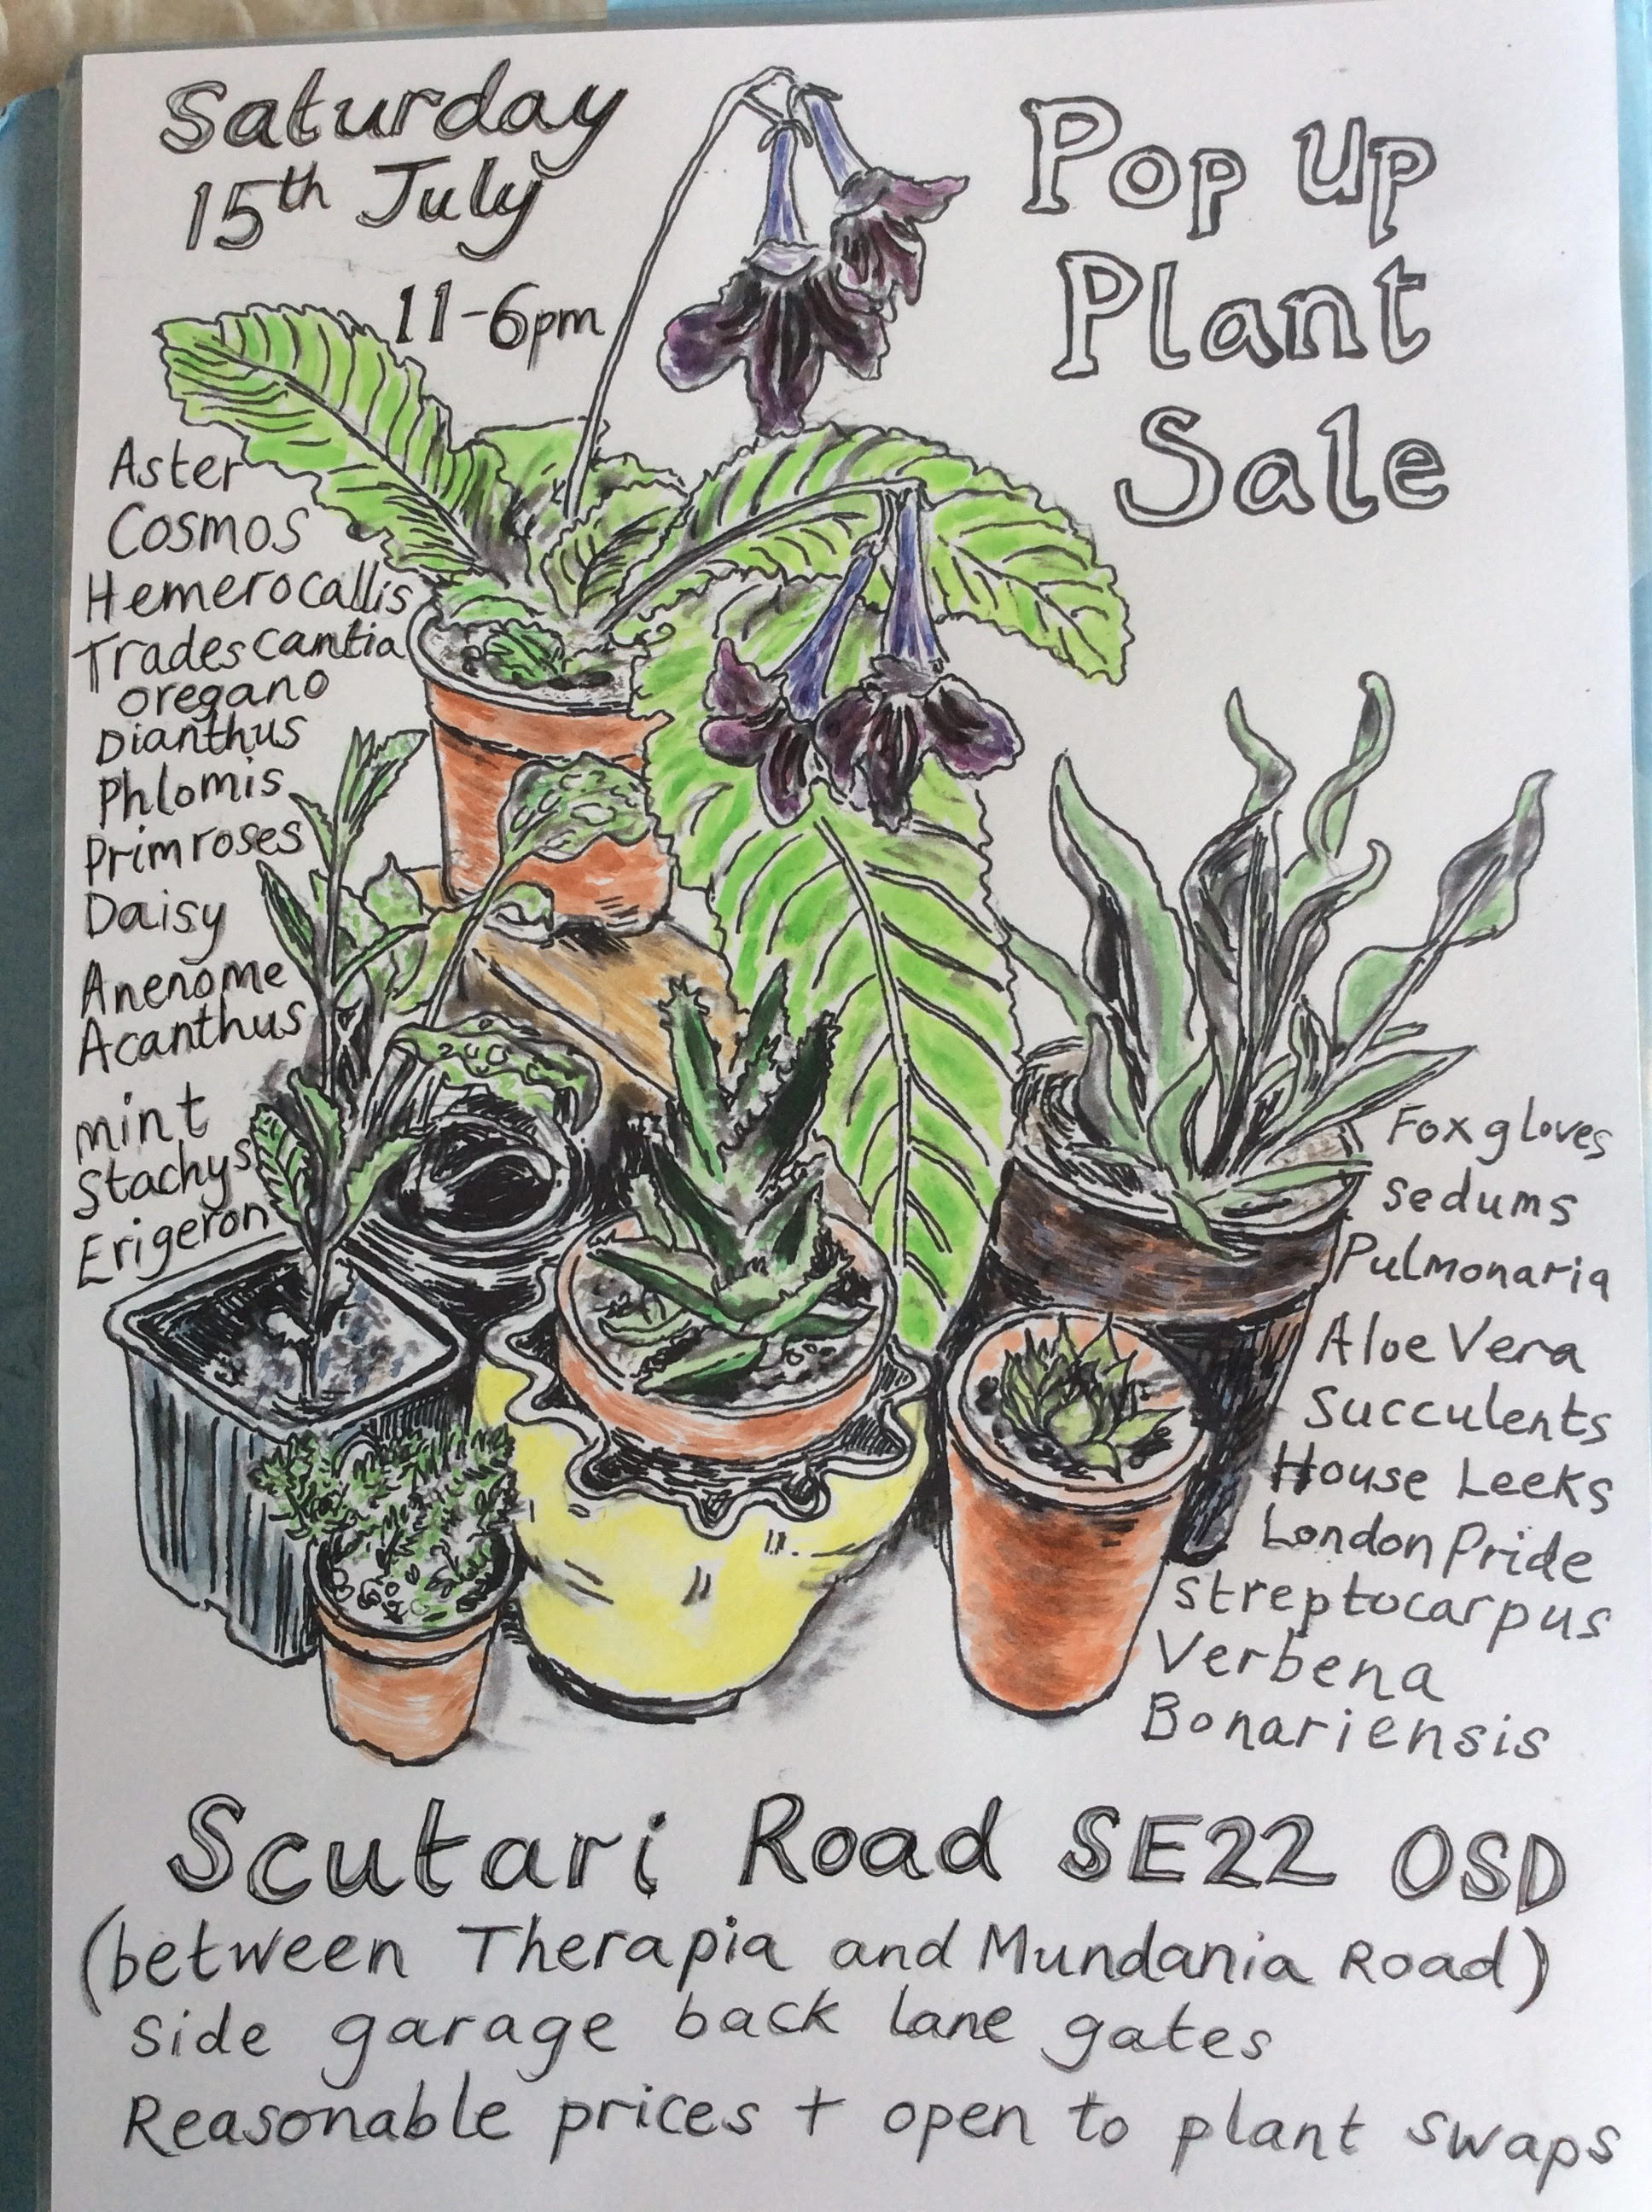 Saturday
15th July
11-6pm
Pop up
Plant
Sale
Aster
Cosmos
Hemerocallis
Tradescantia
oregano
Dianthus
Phlomis
Primroses
Daisy
Anenome
Acanthus
mint
Stachys
Erigeron
Foxgloves
sedums
Pulmonaria
Aloe Vera
Succulents
House Leeks
London Pride
streptocarpus
Verbena
Bonariensis
Scutari Road SE22 OSD
(between Therapia and Mundania Road)
side garage back lane gates
Reasonable prices + open to plant swaps